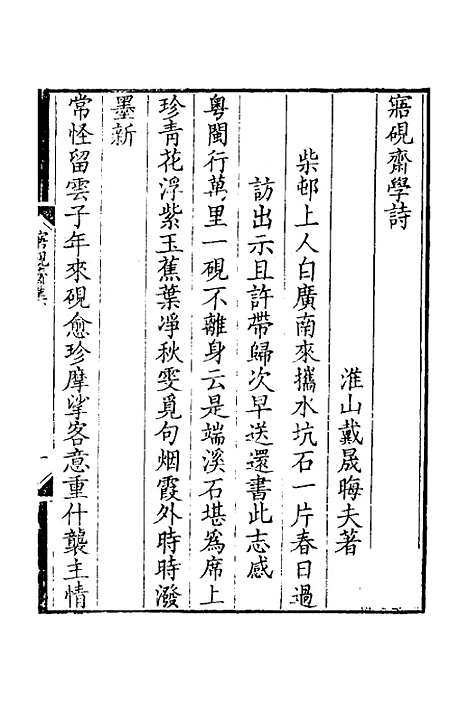 寤硯齋學詩
淮山戴晟晦夫著
柴邨上人自廣南來攜水坑石一片春日過
訪出示且許帶歸次早送還書此志感
粵閩行萬里一硯不離身云是端溪石堪為席上
珍青花浮紫玉蕉葉凈秋雯覓句烟霞外時時潑
墨新
常怪留雲子年來硯愈珍摩挲客意重什襲主情
寤硯齋集
一